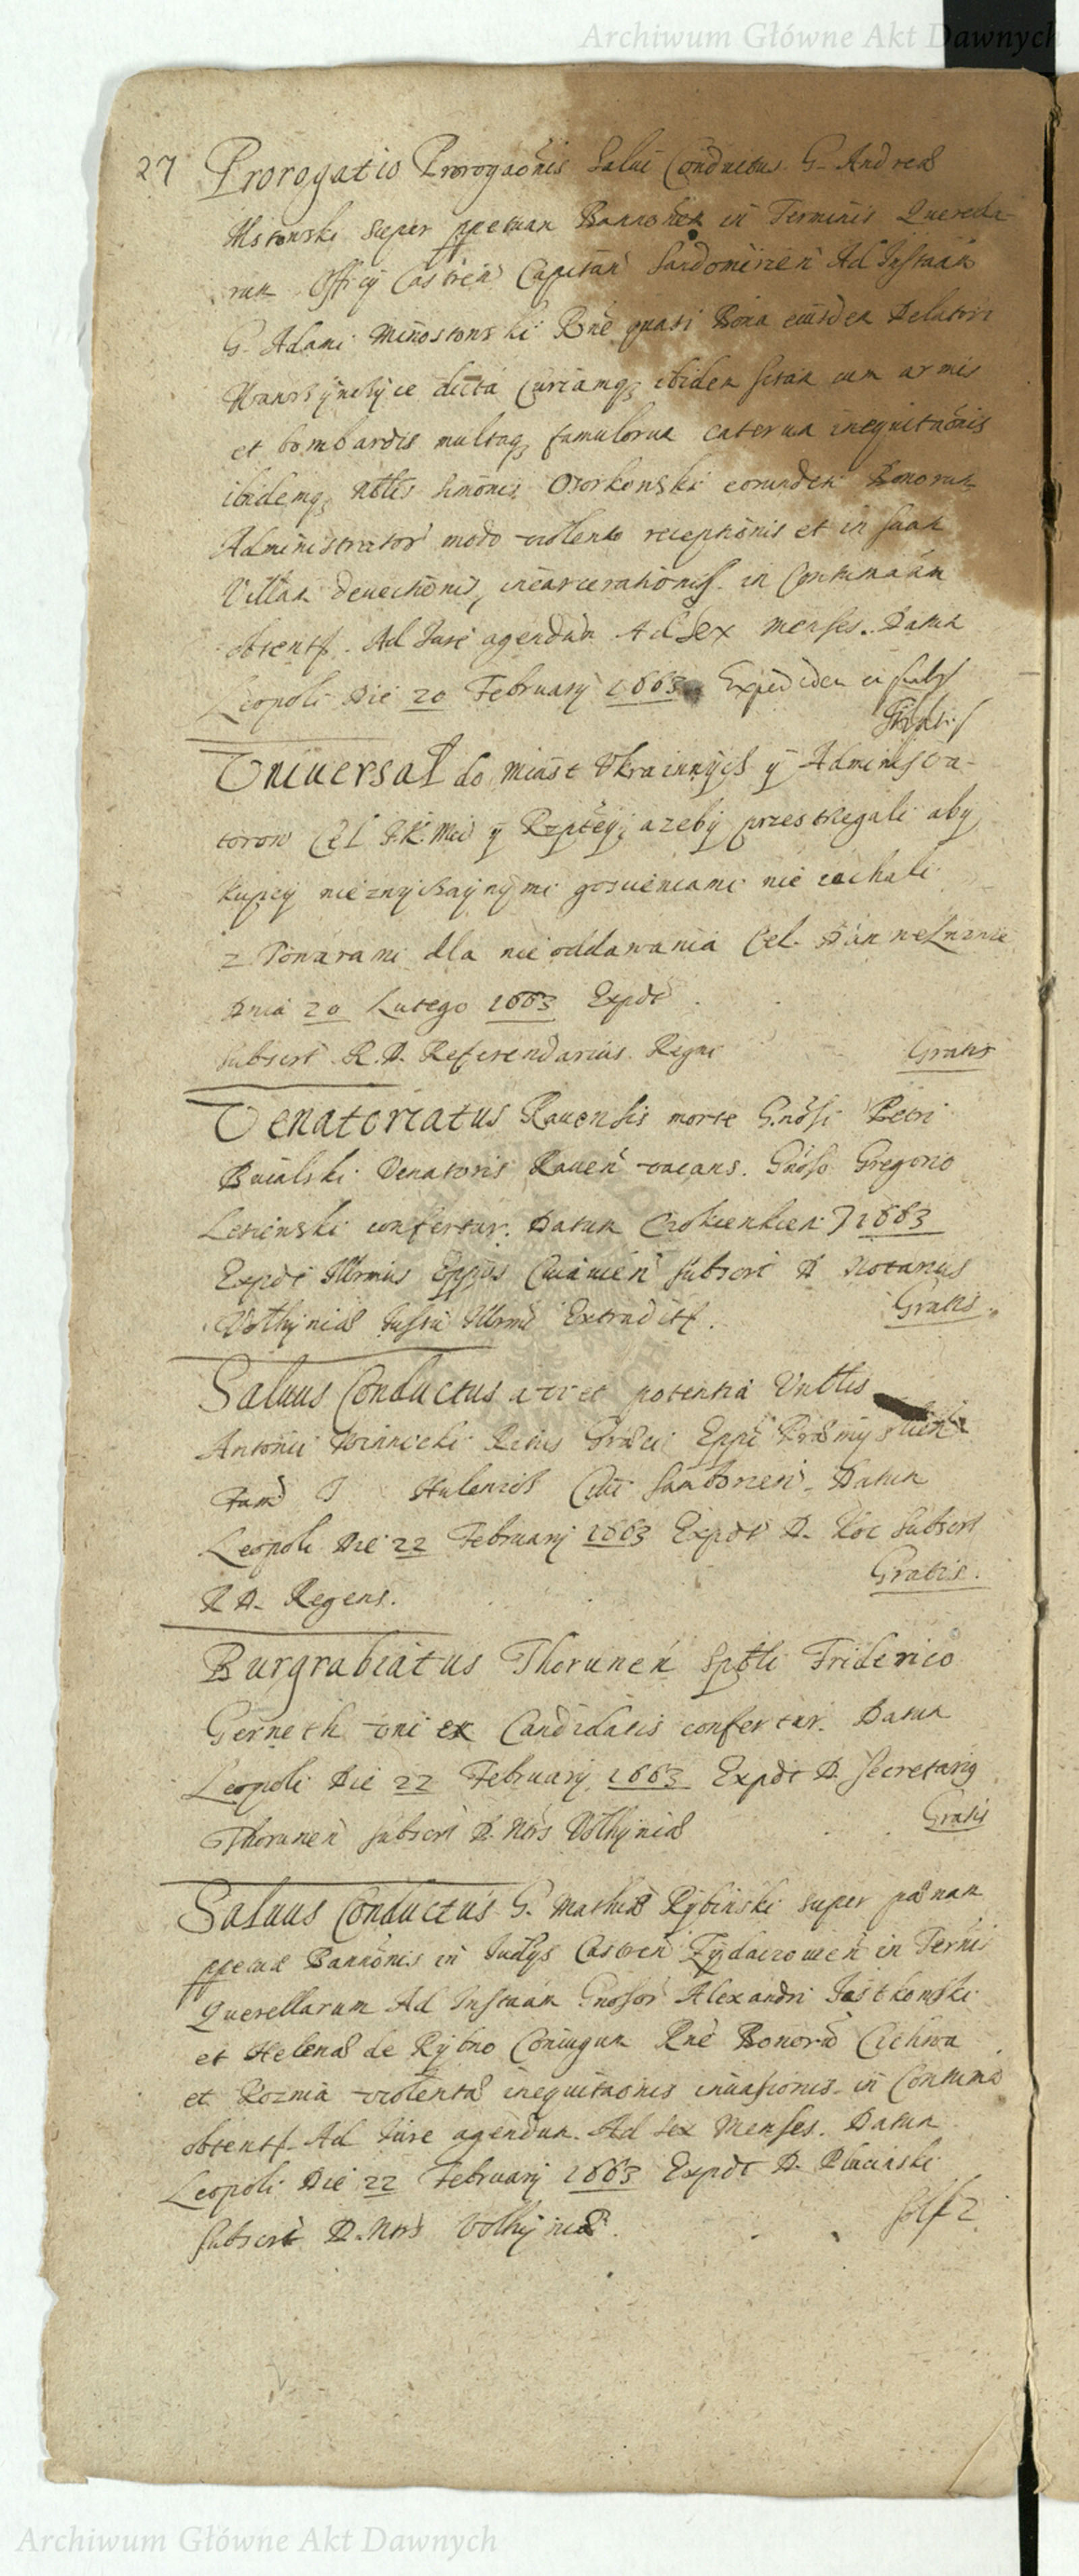 Archiwum Główne Akt Dawnych
27 Prorogatio Prorogaõnis Salui Conductus G. Andreæ
super ppetuam in Terminis Querela-
rum Officÿ Castreñ Capitañ Sandomirieñ Ad Instaãm
G. Adami Rñe quasi Bona eiusdem Delatori
dicta Curiamq, ibidem sitam cum armis
et bombardis multaq, famulorum caterua inequitaõnis
ibidemq, Nblis Simonis Ozorkonski eorundem Bonorum
Administrator modo violento receptionis et in suam
Villam deuectionis, incarcerationis. in Contumaãm
obtent. Ad Jure agendum Ad Sex Menses. Datum
Leopoli Die 20 Februarÿ 1663
Uniuersał do Miast Ukrainnÿch ÿ Administra-
torow Cel J.K.Mci ÿ Rzptey, azebÿ przestrzegali aby
kupcÿ niezwÿczaÿnÿmi goscieniami nie iachali
z Towarami dla nieoddawania Cel. Dan we Lwowie
Dnia 20 Lutego 1663 Expdt
Subscrt R.D. Referendarius Regni
Gratis
Venatoriatus Rauensis morte Gnõsi Petri
Bialski Venatoris Raueñ vacans. Gnõso Gregorio
Lesienski confertur. Datum 1663
Expdt Illrmus Eppus Cuiauieñ subscrt D Notarius
Volhÿniæ Jussu Illrmi Extradit.
Gratis
Saluus Conductus a vi et potentia Vnblis
Antonii Winnicki Ritus Græci Eppi
Datum
Leopoli Die 22 Februarÿ 1663 Expdt D. Subscrt
R D. Regens.
Gratis.
Burgrabiatus Thoruneñ Spbli Friderico
Gerneth vni ex Candidatis confertur. Datum
Leopoli Die 22 Februarÿ 1663 Expdt D. Secretariÿ
Thoruneñ subscrt D. Nrs Volhÿniæ
Gratis
Saluus Conductus G. Mathiæ Rÿbinski super pænam
ppetuæ Bannõnis in Judÿs Castreñ Zÿdaczowieñ in Terñis
Querellarum Ad Instaãm Gnosor Alexandri Jastkowski
et Helenæ de Rÿbno Coniugum Rñe Bonorũ Cichwa
et Rozma violentæ inequitaõnis inuasionis in Contuma
obtent. Ad Jure agendum. Ad Sex Menses. Datum
Leopoli Die 22 Februarÿ 1663 Expdt D. Pluciński
Subscrt D. Nrs Volhÿniæ.
Archiwum Główne Akt Dawnych